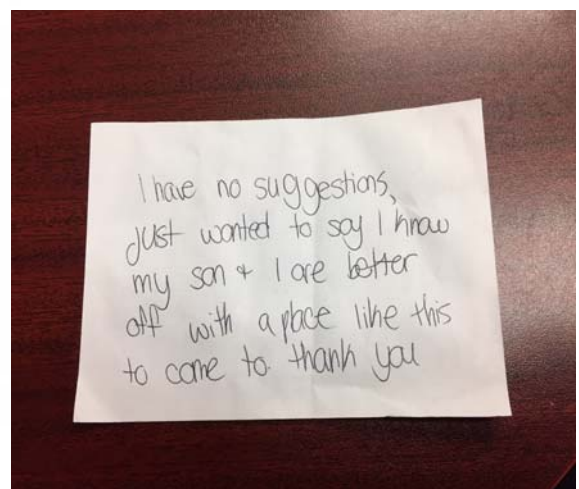 I have no suggestions,
just wanted to say I know
my son + I are better
off with a place like this
to come to. thank you